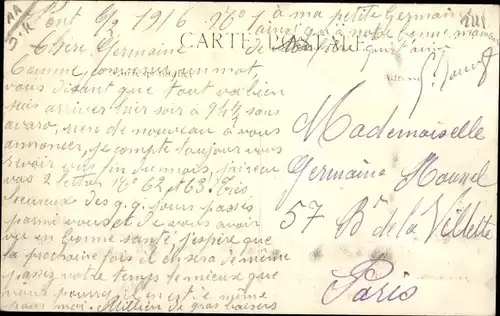 Pont 6/2 1916 N° 1
à ma petite Germaine
ainsi qu'à notre bonne maman
CARTE POSTALE
Chère Germaine
Comme convenu un mot
vous disant que tout va bien
suis arriver hier soir à 9 h 1/2 sans
avaro, rien de nouveau à vous
annoncer, je compte toujours vous
revoir vers fin du mois,
vos 2 lettres N° 62 et 63. Très
heureux des q.q. jours passés
parmi vous et de vous avoir
vu en bonne santé j'espère que
la prochaine fois il en sera de même
passez votre temps le mieux que
vous pourrez, il en est de même
pour moi. Million de gros baisers
Mademoiselle
Germaine
57 Bd de la Villette
Paris